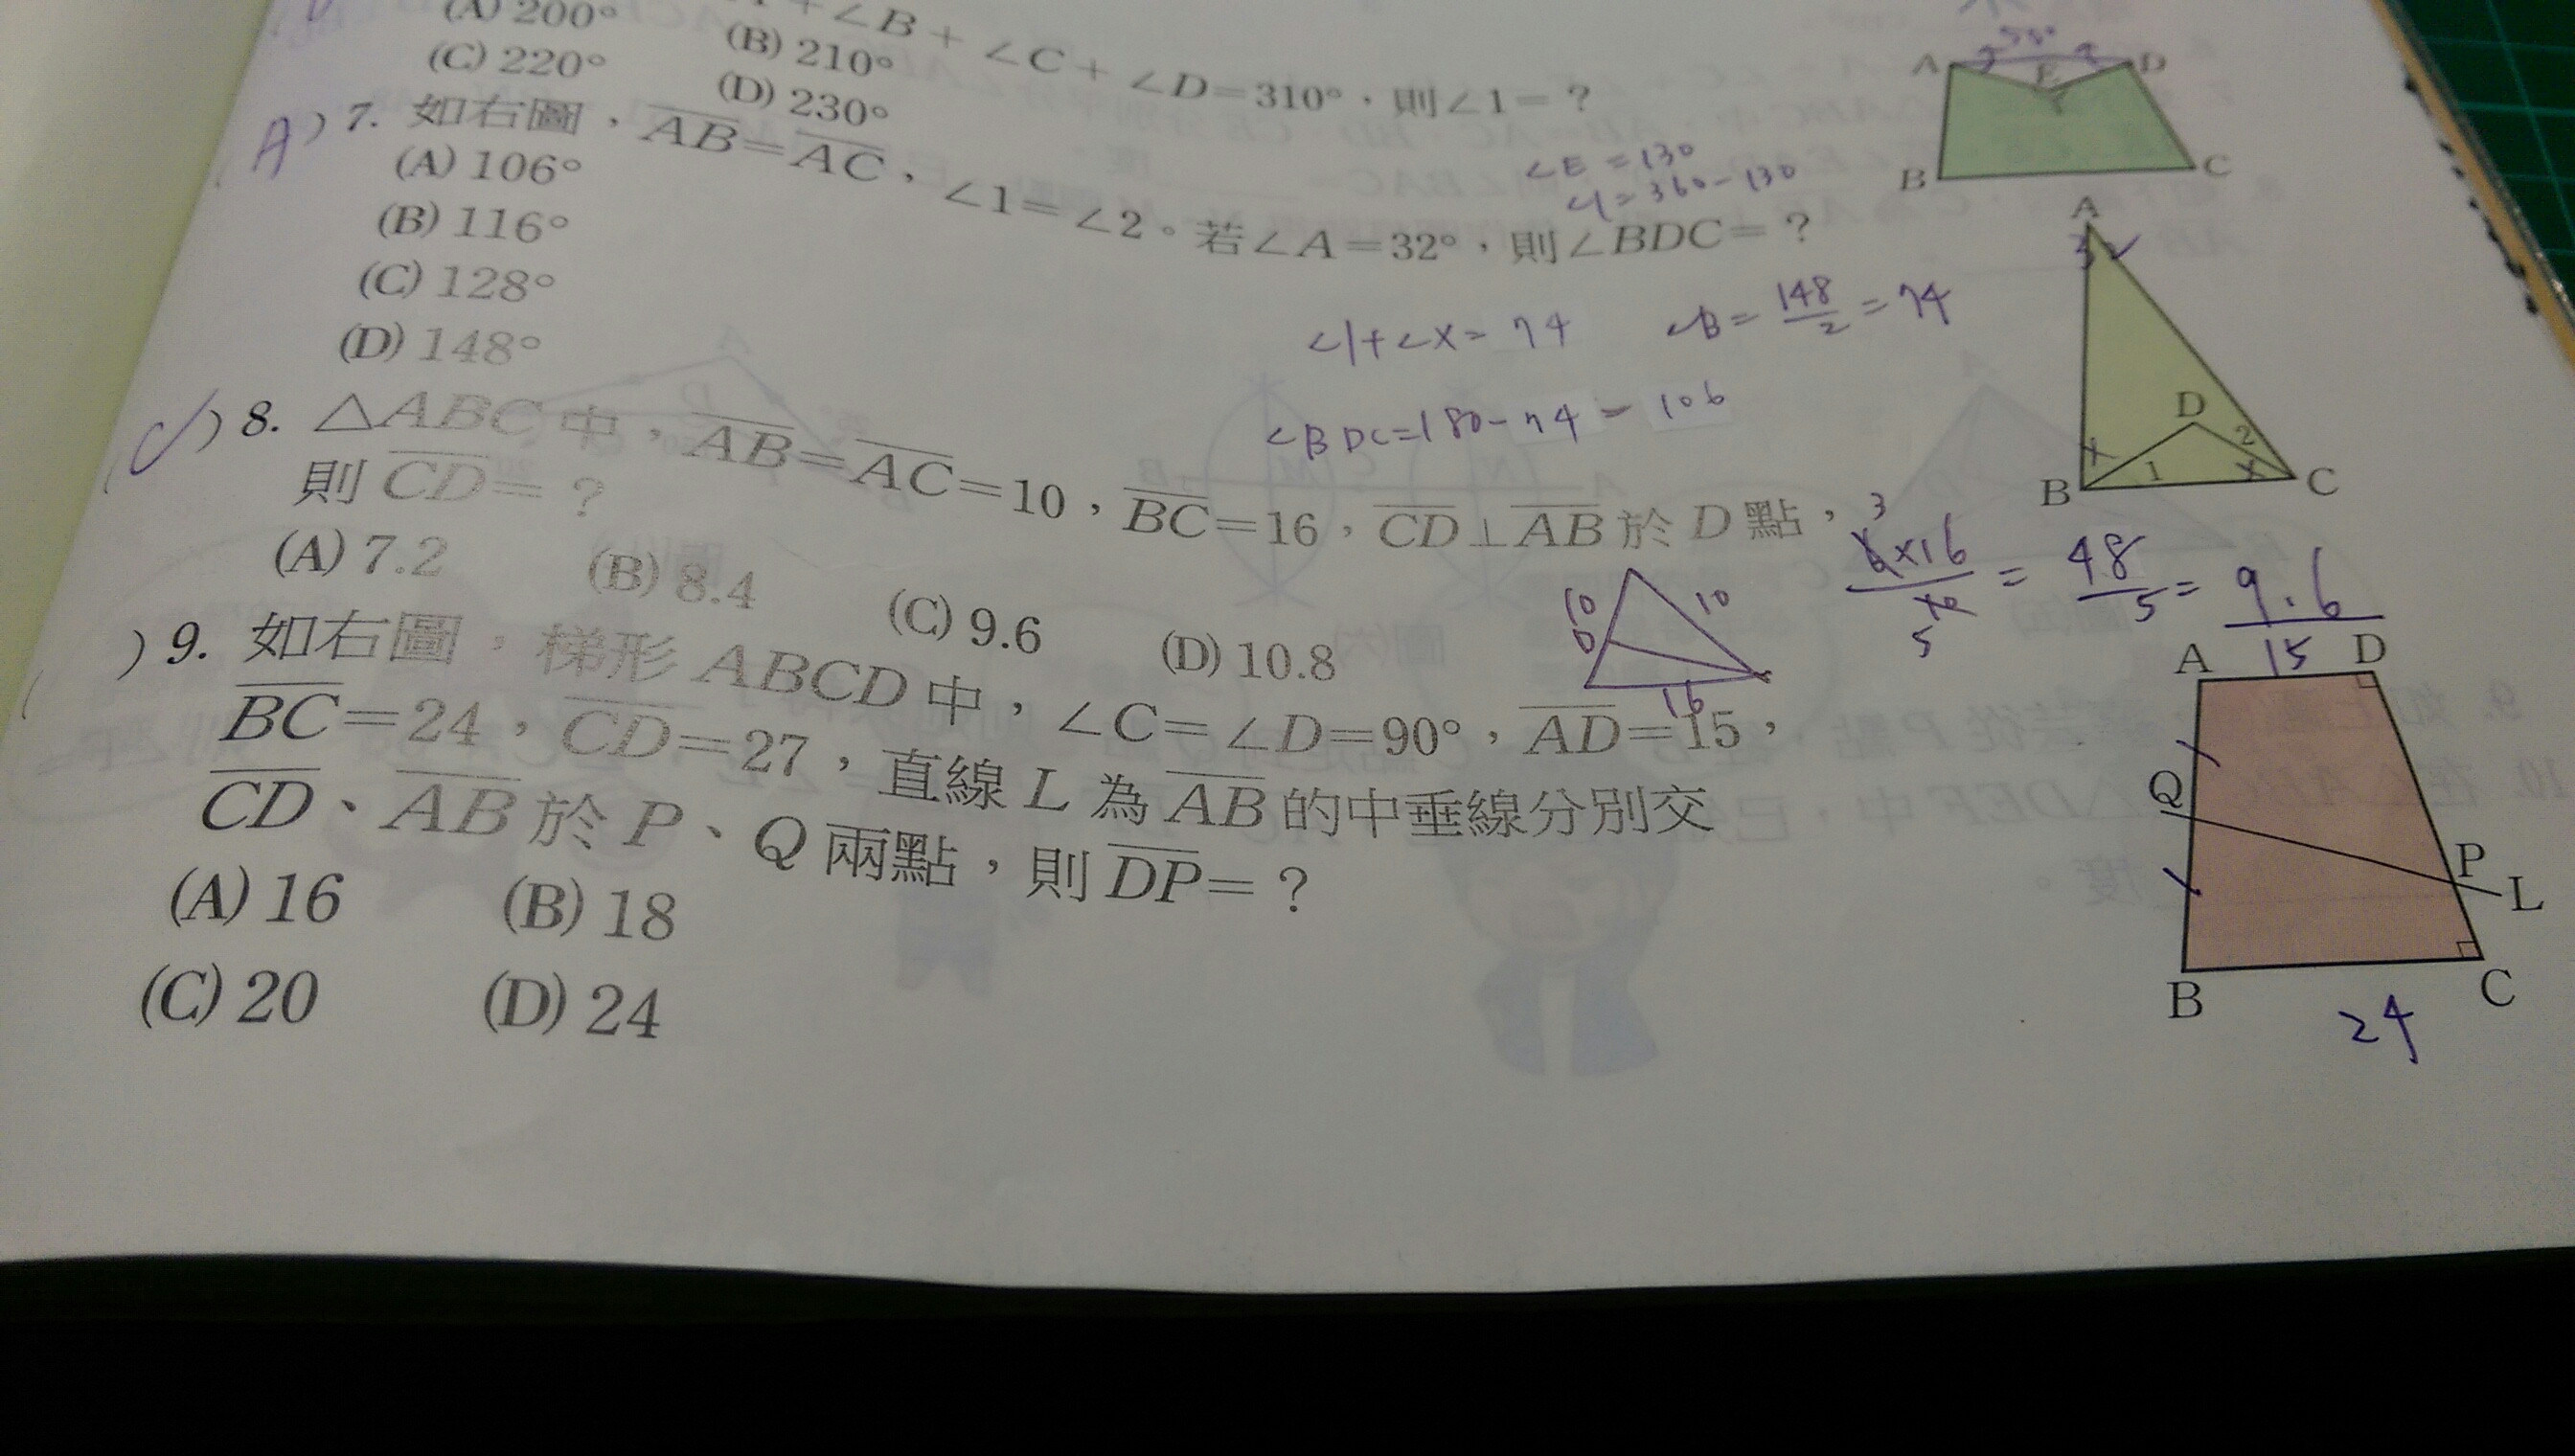 +∠B+∠C+∠D=310°，則∠1=？
(A) 200°
(B) 210°
(C) 220°
(D) 230°
A
E
D
B
C
∠E=130
∠1=360-130
A ) 7. 如右圖，AB=AC，∠1=∠2。若∠A=32°，則∠BDC=？
(A) 106°
(B) 116°
(C) 128°
(D) 148°
∠1+∠x=74
∠B=148/2=74
∠BDC=180-74=106
A
D
2
x
1
x
B
C
C ) 8. △ABC 中，AB=AC=10，BC=16，CD⊥AB 於 D 點，
則 CD=？
(A) 7.2
(B) 8.4
(C) 9.6
(D) 10.8
10
10
D
16
3
6×16/10=48/5=9.6
5
( ) 9. 如右圖，梯形 ABCD 中，∠C=∠D=90°，AD=15，
BC=24，CD=27，直線 L 為 AB 的中垂線分別交
CD、AB 於 P、Q 兩點，則 DP=？
(A) 16
(B) 18
(C) 20
(D) 24
A
15
D
Q
P
L
B
C
24